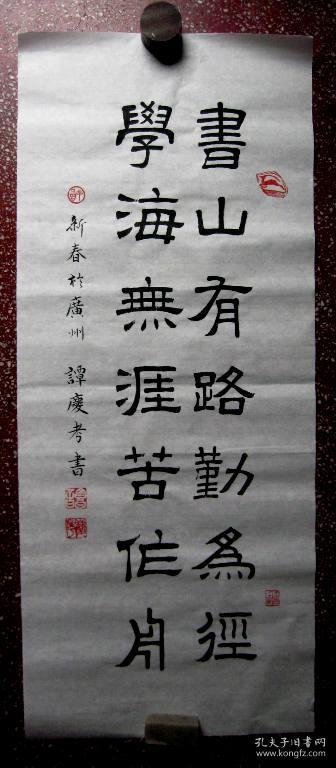 書山有路勤爲徑
學海無涯苦作舟
新春於廣州 譚慶考書
孔夫子旧书网
www.kongfz.com